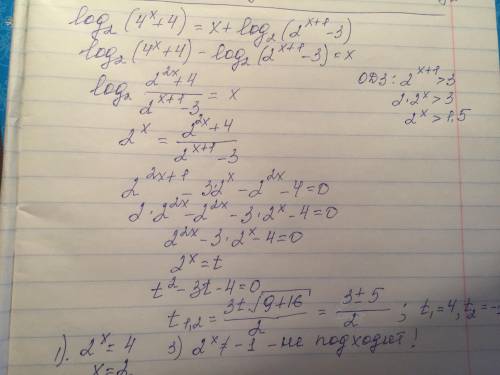 log₂(4ˣ+4) = x + log₂(2ˣ⁺¹-3)
log₂(4ˣ+4) - log₂(2ˣ⁺¹-3) = x
log₂ (2²ˣ+4)/(2ˣ⁺¹-3) = x
ОДЗ: 2ˣ⁺¹>3
2·2ˣ>3
2ˣ>1,5
2ˣ = (2²ˣ+4)/(2ˣ⁺¹-3)
2²ˣ⁺¹ - 3·2ˣ - 2²ˣ - 4 = 0
2·2²ˣ - 2²ˣ - 3·2ˣ - 4 = 0
2²ˣ - 3·2ˣ - 4 = 0
2ˣ = t
t² - 3t - 4 = 0
t₁,₂ = (3±√(9+16))/2 = (3±5)/2 ; t₁=4, t₂=-
1). 2ˣ = 4
x = 2
2ˣ ≠ -1 - не подходит!